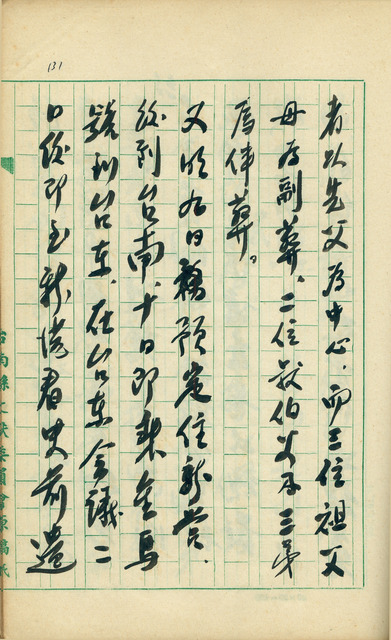 131
者以先父為中心,而三位祖父
母為副葬、二位叔伯父及三弟
為伴葬。
又明九日預定住新營、
後到台南、十日即乘金馬
號到台東、在台東會議二
日後即至新港看史前遺
台南縣文獻委員會原稿紙